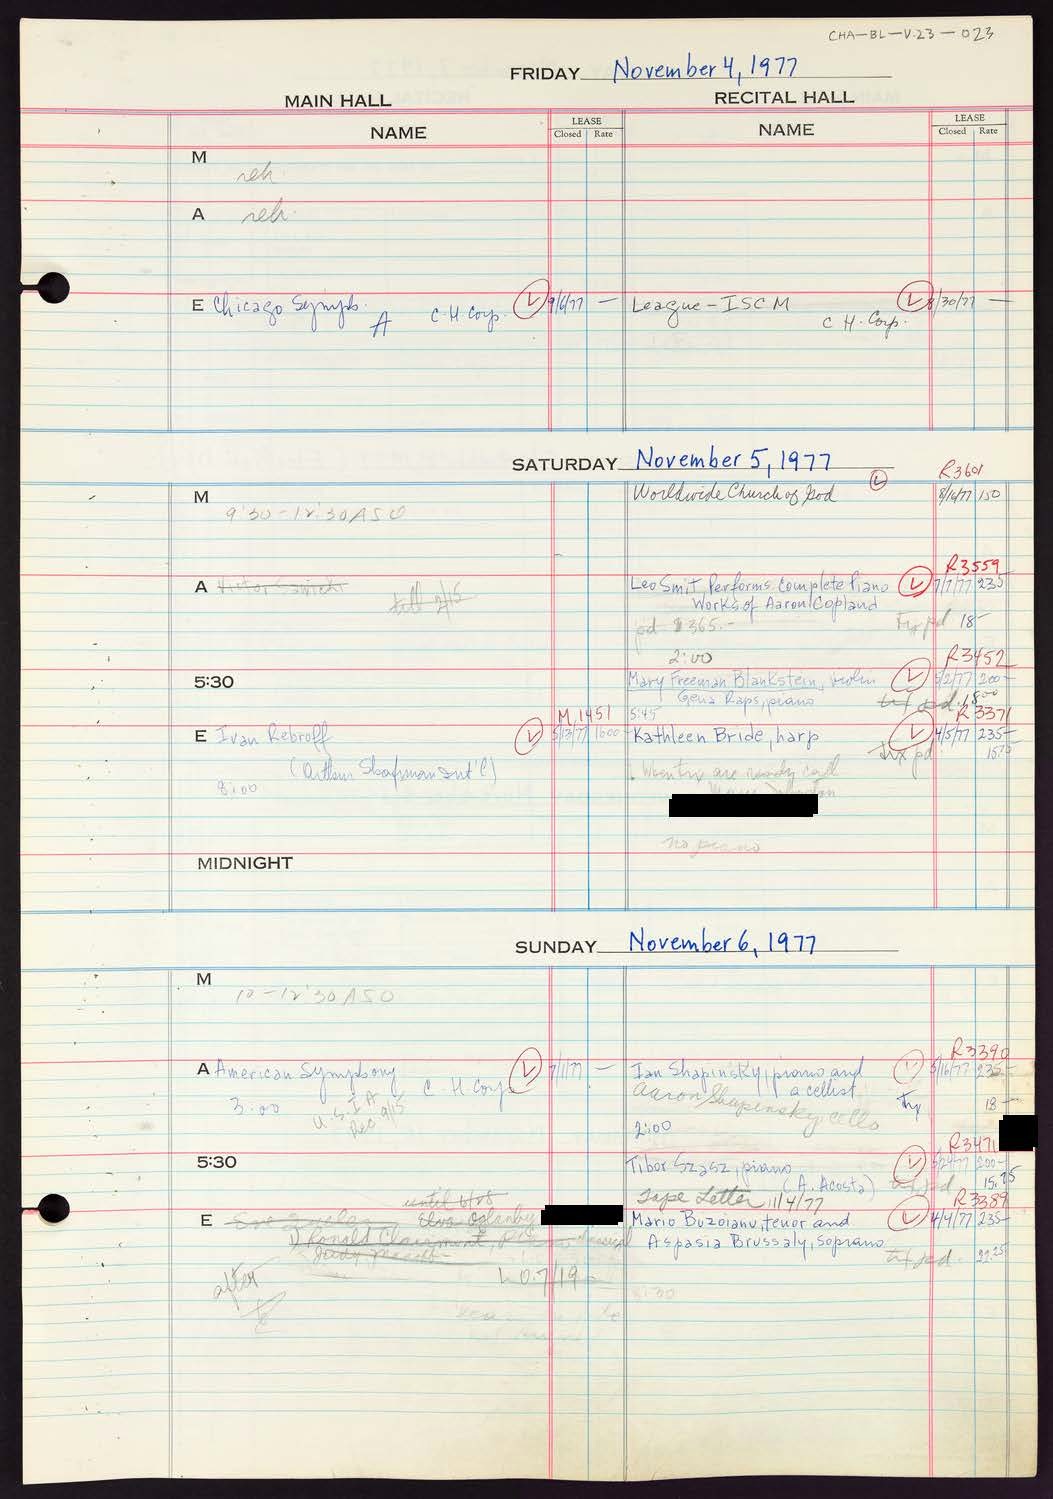 CHA-BL-V.23-023
FRIDAY November 4, 1977
MAIN HALL RECITAL HALL
NAME LEASE Closed Rate NAME LEASE Closed Rate
M reh.
A reh.
E Chicago Symph. 9/6/77 — League-ISCM 8/30/77 —
A C H Corp. C H. Corp.
SATURDAY November 5, 1977
R3601
M Worldwide Church of God 8/16/77 150
9:30-12:30 ASO
R3559
A Leo Smit Performs Complete Piano 7/7/77 235
Works of Aaron Copland
pd. $365.- pd 18-
2:00
R3452
5:30 Mary Freeman Blankstein, violin 5/2/77 200-
Gena Raps, piano
M1451 5:45 R3371
E Ivan Rebroff 5/13/77 1600 Kathleen Bride, harp 4/5/77 235-
(Arthur Shafman Int'l) trx pd 15.75
8:00 When trx are ready call
no piano
MIDNIGHT
SUNDAY November 6, 1977
M
10-12:30 ASO
R3390
A American Symphony 7/1/77 — Ian Shapinsky, piano and 5/16/77 235-
C H Corp a cellist
3:00 Aaron Shapinsky, cello trx 18-
U.S.I A
Rec 9/15 2:00
R3471
5:30 Tibor Szasz, piano 5/24/77 200-
(A. Acosta) 15.75
Tape Letter 11/4/77 R3389
until 6/28
E Mario Buzoianu, tenor and 4/4/77 235-
Ronald
Judy Aspasia Brussaly, Soprano
trx pd. 22.25
7/19 8:30
after